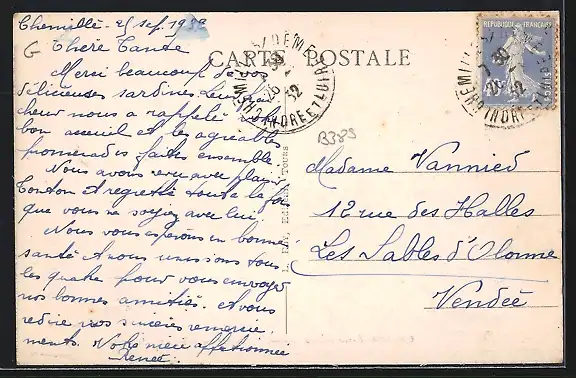 Chemillé - 25 sept. 1932
Chère Tante
Merci beaucoup de vos
délicieuses sardines. Leur
nous a rappelé votre
bon accueil et les agréables
promenades faites ensemble.
Nous avons revu avec plaisir
Tonton et regretté toute la fois
que vous ne soyez avec lui.
Nous vous espérons en bonne
santé et nous unissons tous
les quatre pour vous envoyer
nos bonnes amitiés. Avous
redire nos sincères remercie-
ments. Votre nièce affectionnée
Renée.
G
CARTE POSTALE
TOURS
B389
RÉPUBLIQUE FRANÇAISE
POSTES
INDRE ET LOIRE
7 30
26
32
Madame Vannied
12 rue des Halles
Les Sables d'Olonne
Vendée